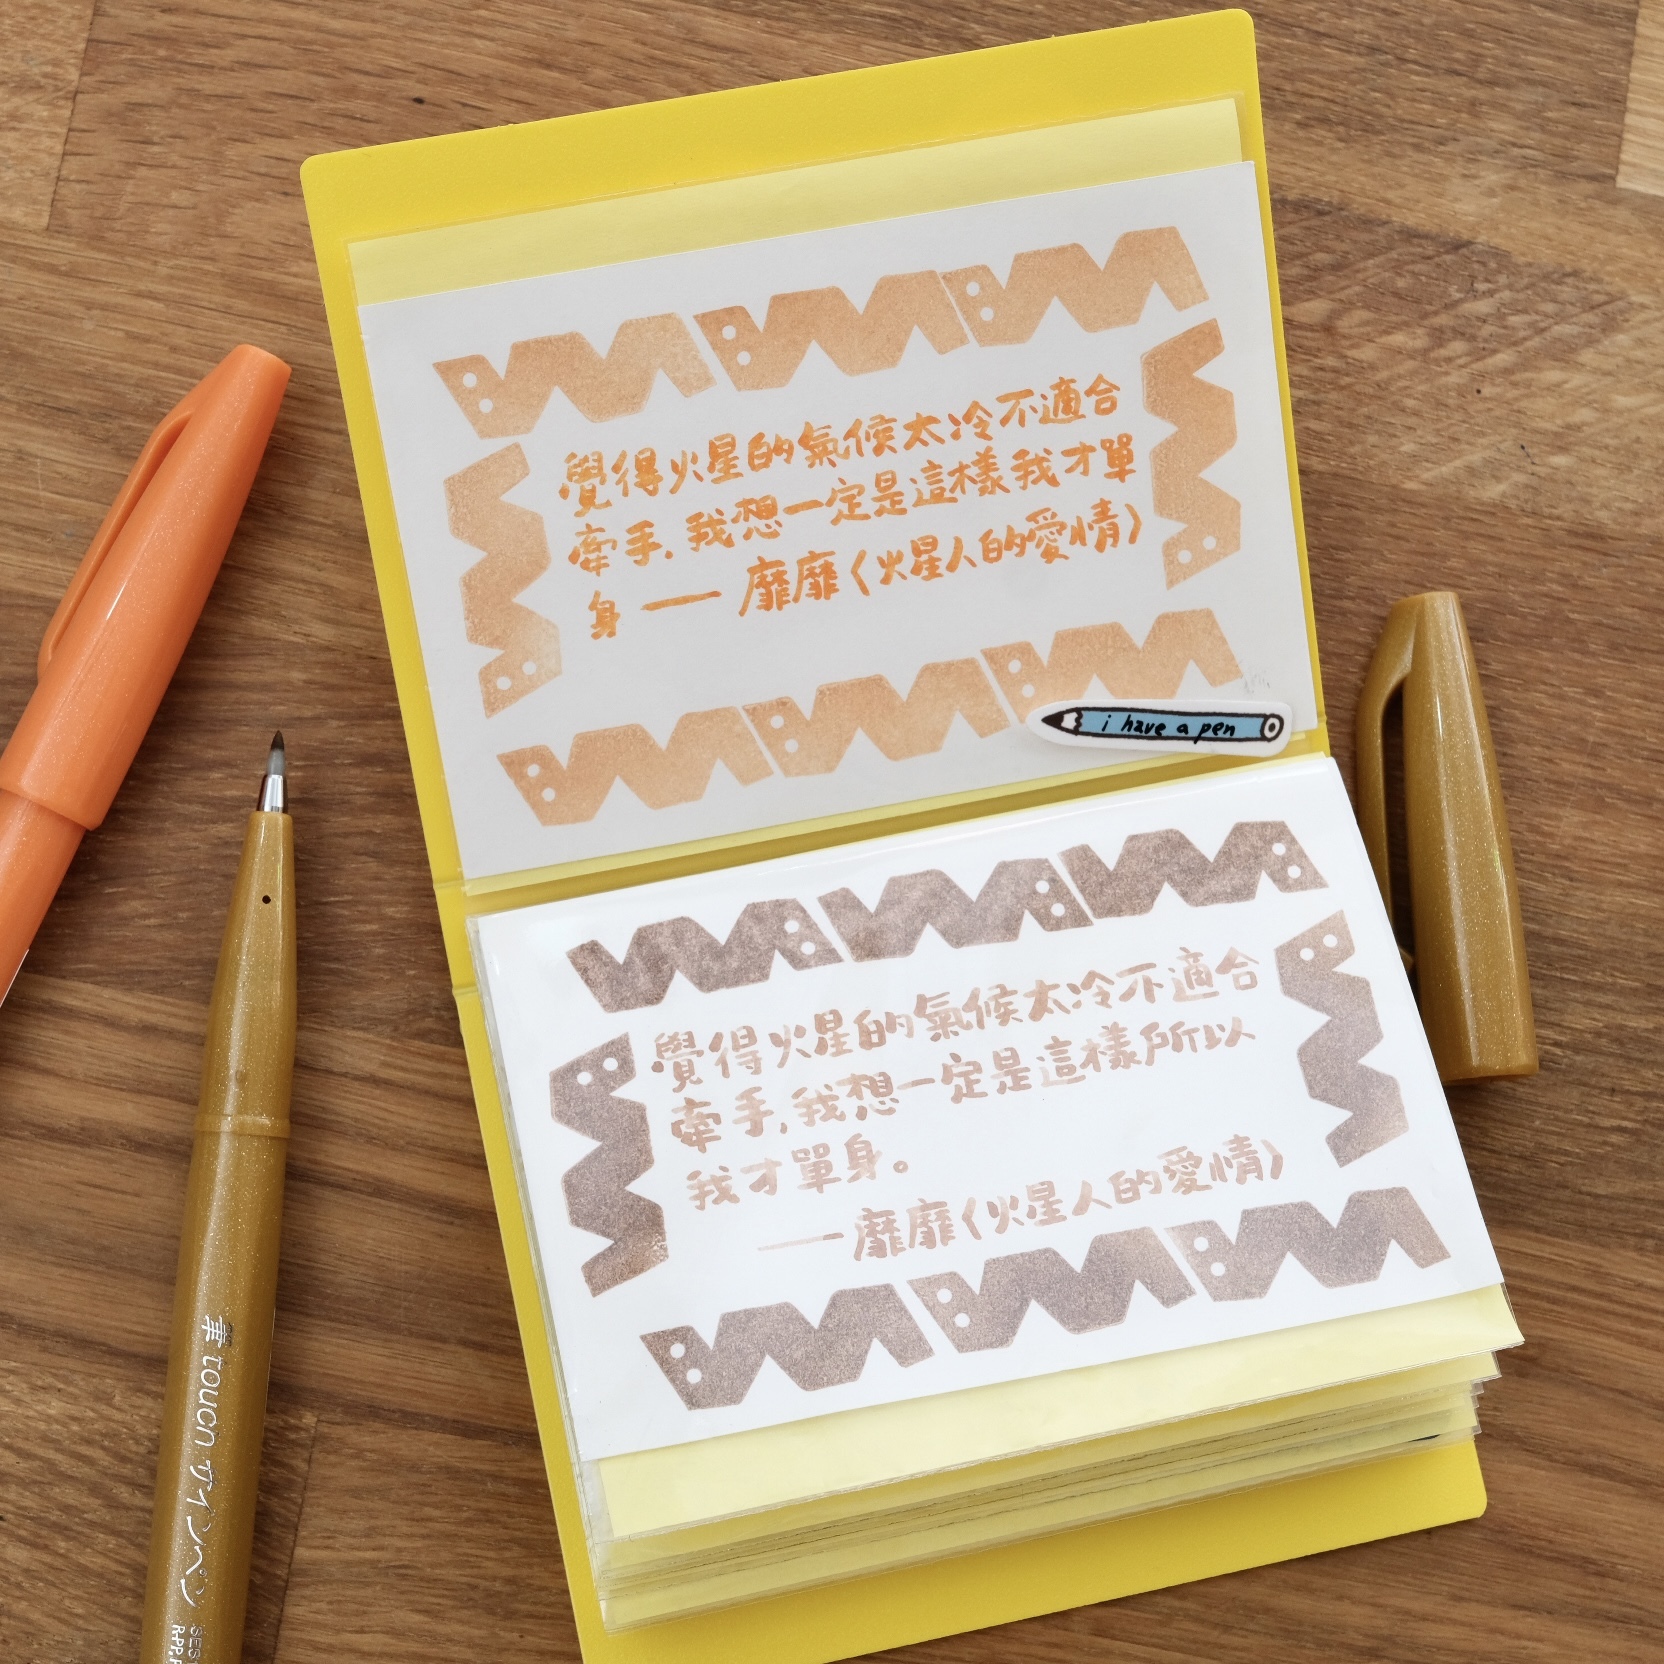 覺得火星的氣候太冷不適合
牽手,我想一定是這樣我才單
身 —— 靡靡〈火星人的愛情〉
i have a pen
覺得火星的氣候太冷不適合
牽手,我想一定是這樣所以
我才單身。
——靡靡〈火星人的愛情〉
筆touch サインペン
SES1
R-PP.P